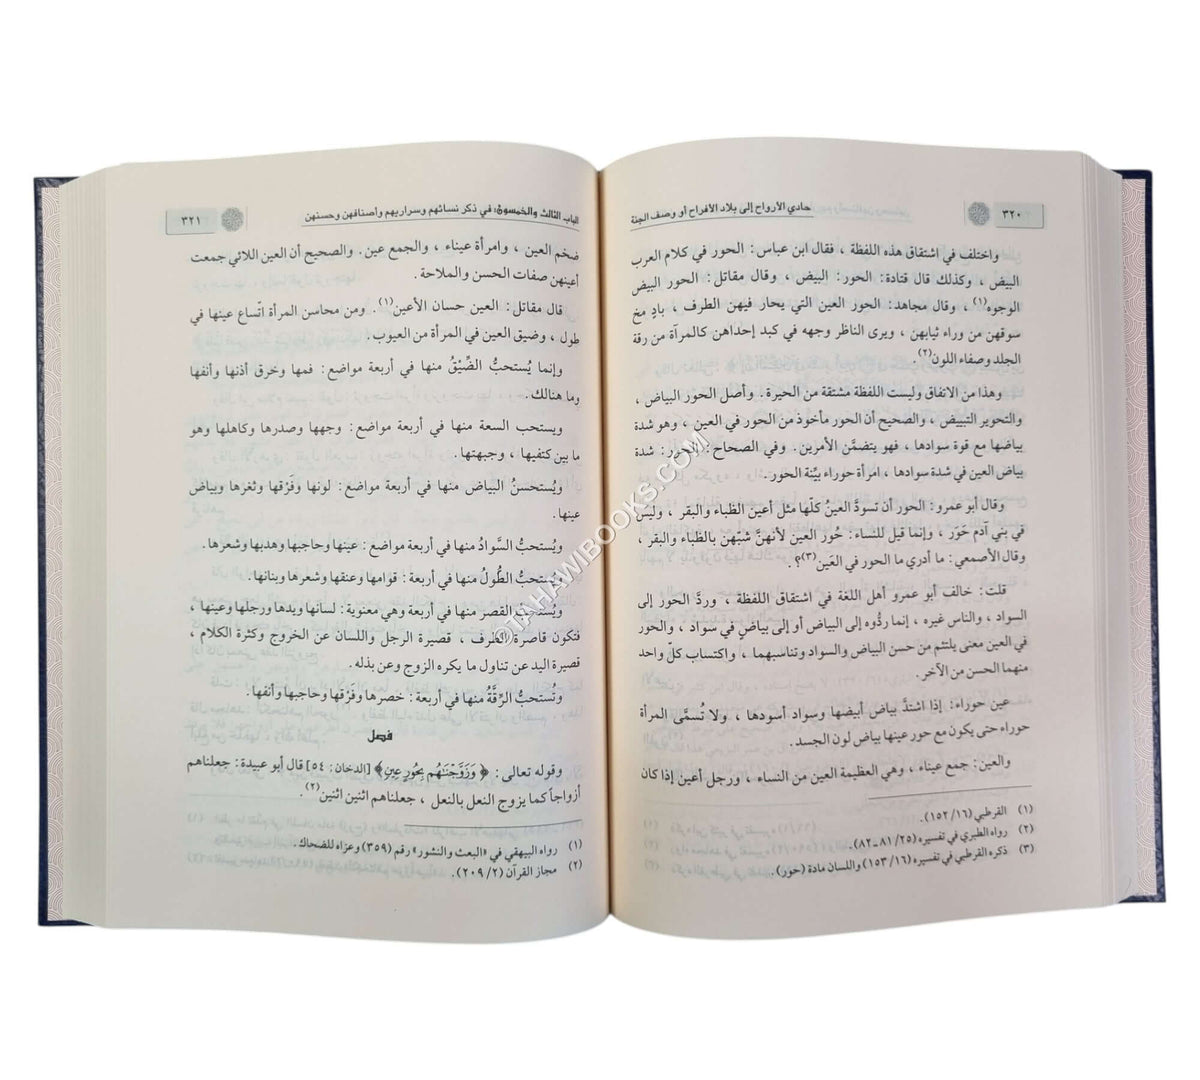 ٣٢٠
حادي الأرواح إلى بلاد الأفراح أو وصف الجنة
واختلف في اشتقاق هذه اللفظة ، فقال ابن عباس: الحور في كلام العرب
البيض ، وكذلك قال قتادة: الحور: البيض ، وقال مقاتل: الحور البيض
الوجوه(١) ، وقال مجاهد: الحور العين التي يحار فيهن الطرف ، بادٍ مخ
سوقهن من وراء ثيابهن ، ويرى الناظر وجهه في كبد إحداهن كالمرآة من رقة
الجلد وصفاء اللون(٢).
وهذا من الاتفاق وليست اللفظة مشتقة من الحيرة. وأصل الحور البياض ،
والتحوير التبييض ، والصحيح أن الحور مأخوذ من الحور في العين ، وهو شدة
بياضها مع قوة سوادها ، فهو يتضمَّن الأمرين. وفي الصحاح: الحور: شدة
بياض العين في شدة سوادها ، امرأة حوراء بيِّنة الحور.
وقال أبو عمرو: الحور أن تسودَّ العينُ كلّها مثل أعين الظباء والبقر ، وليس
في بني آدم حَوَر ، وإنما قيل للنساء: حُور العين لأنهنَّ شبّهن بالظباء والبقر ،
وقال الأصمعي: ما أدري ما الحور في العَين(٣)؟ .
قلت: خالف أبو عمرو أهل اللغة في اشتقاق اللفظة ، وردَّ الحور إلى
السواد ، والناس غيره ، إنما ردُّوه إلى البياض أو إلى بياضٍ في سواد ، والحور
في العين معنى يلتئم من حسن البياض والسواد وتناسبهما ، واكتساب كلّ واحد
منهما الحسن من الآخر.
عين حوراء: إذا اشتدَّ بياض أبيضها وسواد أسودها ، ولا تُسمَّى المرأة
حوراء حتى يكون مع حور عينها بياض لون الجسد.
والعين: جمع عيناء ، وهي العظيمة العين من النساء ، ورجل أعين إذا كان
(١) القرطبي (١٥٢/١٦).
(٢) رواه الطبري في تفسيره (٢٥/ ٨١ـ٨٢).
(٣) ذكره القرطبي في تفسيره (١٥٣/١٦) واللسان مادة (حور).
الباب الثالث والخمسون: في ذكر نسائهم وسراريهم وأصنافهن وحسنهن
٣٢١
ضخم العين ، وامرأة عيناء ، والجمع عين. والصحيح أن العين اللائي جمعت
أعينهن صفات الحسن والملاحة.
قال مقاتل: العين حسان الأعين(١). ومن محاسن المرأة اتّساع عينها في
طول ، وضيق العين في المرأة من العيوب.
وإنما يُستحبُّ الضِّيْقُ منها في أربعة مواضع: فمها وخرق أذنها وأنفها
وما هنالك.
ويستحب السعة منها في أربعة مواضع: وجهها وصدرها وكاهلها وهو
ما بين كتفيها ، وجبهتها.
ويُستحسنُ البياض منها في أربعة مواضع: لونها وفَرْقها وثغرها وبياض
عينها.
ويُستحبُّ السَّوادُ منها في أربعة مواضع: عينها وحاجبها وهدبها وشعرها.
ويُستحبُّ الطُّولُ منها في أربعة: قوامها وعنقها وشعرها وبنانها.
ويُستحبُّ القصر منها في أربعة وهي معنوية: لسانها ويدها ورجلها وعينها ،
فتكون قاصرة الطرف ، قصيرة الرجل واللسان عن الخروج وكثرة الكلام ،
قصيرة اليد عن تناول ما يكره الزوج وعن بذله.
وتُستحبُّ الرِّقَّةُ منها في أربعة: خصرها وفَرْقها وحاجبها وأنفها.
فصل
وقوله تعالى: ﴿وَزَوَّجْنَاهُم بِحُورٍ عِينٍ﴾ [الدخان: ٥٤] قال أبو عبيدة: جعلناهم
أزواجاً كما يزوج النعل بالنعل ، جعلناهم اثنين اثنين(٢).
(١) رواه البيهقي في «البعث والنشور» رقم (٣٥٩) وعزاه للضحاك.
(٢) مجاز القرآن (٢٠٩/٢).
©TAHAWIBOOKS.COM